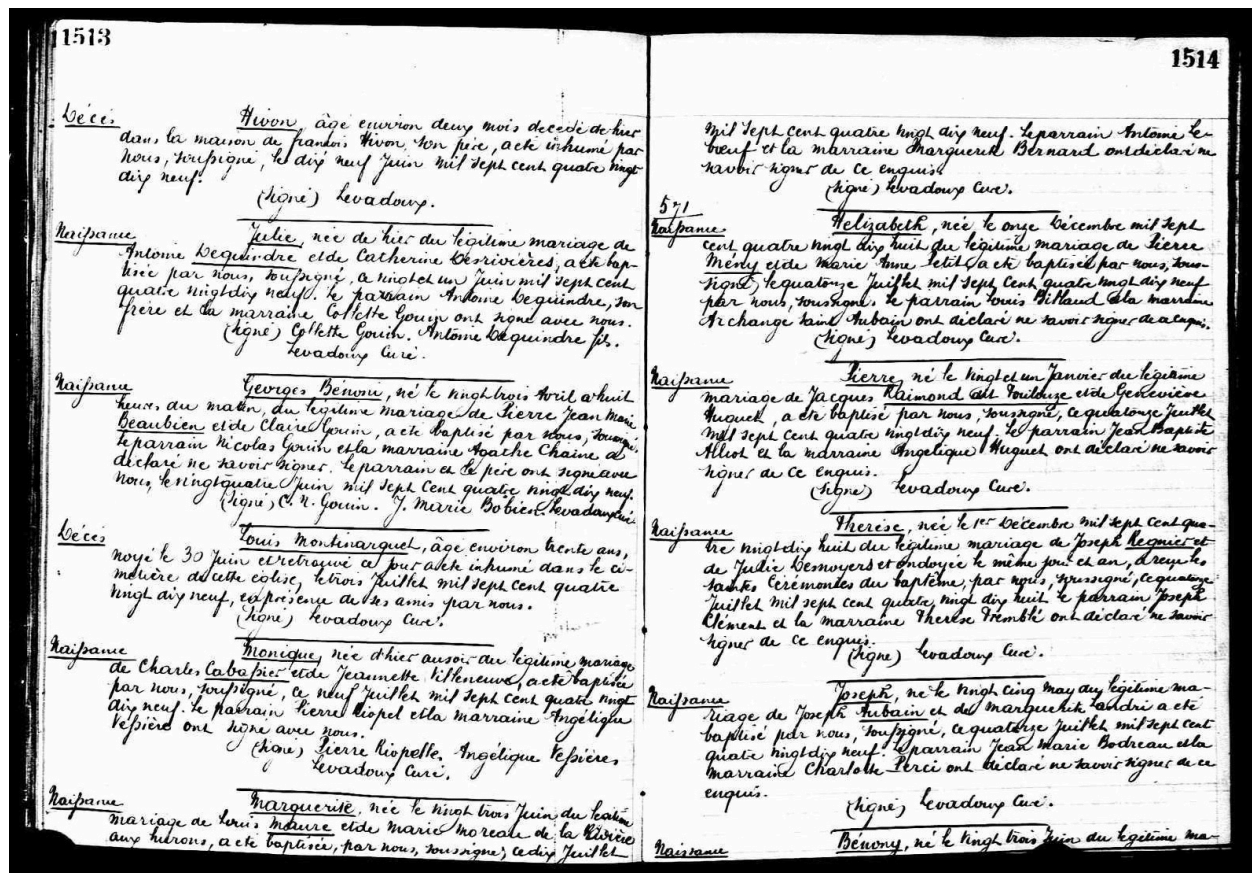 1513
Décès Hivon, âgé environ deux mois decédé de hier
dans la maison de francois Hivon, son père, a été inhumé par
nous, soussigné, le dix neuf Juin mil sept cent quatre vingt
dix neuf.
(Signé) Levadoux.
Naissance Julie, née de hier du légitime mariage de
Antoine Dequindre et de Catherine Desrivières, a été bap-
tisée par nous, soussigné, ce vingt et un Juin mil sept cent
quatre vingt dix neuf. Le parrain Antoine Dequindre, son
frère et la marraine Collette Gouin ont signé avec nous.
(Signé) Collette Gouin. Antoine Dequindre fils.
Levadoux Curé.
Naissance Georges Bénoni, né le vingt trois Avril a huit
heures du matin, du légitime mariage de Pierre Jean Marie
Beaubien et de Claire Gouin, a été baptisé par nous, soussigné,
le parrain Nicolas Gouin et la marraine Agathe Chaine a
déclaré ne savoir signer. Le parrain et le père ont signé avec
nous, le vingt quatre Juin mil sept cent quatre vingt dix neuf.
(Signé) C. N. Gouin. J. Marie Bobien. Levadoux Curé
Décès Louis Montinarquet, âgé environ trente ans,
noyé le 30 Juin et retrouvé ce jour a été inhumé dans le ci-
metière de cette église, le trois Juillet mil sept cent quatre
vingt dix neuf, en présence de ses amis par nous.
(Signé) Levadoux Curé.
Naissance Monique, née d'hier au soir du légitime mariage
de Charles Cabassier et de Jeannette Villeneuve, a été baptisée
par nous, soussigné, ce neuf Juillet mil sept cent quatre vingt
dix neuf. Le parrain Pierre Riopel et la marraine Angélique
Vessière ont signé avec nous.
(Signé) Pierre Riopelle. Angélique Vessières
Levadoux Curé.
Naissance Marguerite, née le vingt trois Juin du légitime
mariage de Louis Maure et de Marie Moreau de la Rivière
aux hurons, a été baptisée, par nous, soussigné, ce dix Juillet
1514
mil sept cent quatre vingt dix neuf. Le parrain Antoine Le-
bœuf et la marraine Marguerite Bernard ont déclaré ne
savoir signer de ce enquis.
(Signé) Levadoux Curé.
571
Naissance Helizabeth, née le onze Décembre mil sept
cent quatre vingt dix huit du légitime mariage de Pierre
Mény et de Marie Anne Petit a été baptisée par nous, sous-
signé, le quatorze Juillet mil sept cent quatre vingt dix neuf
par nous, soussigné. Le parrain Louis Billaud et la marraine
Archange Saint Aubain ont déclaré ne savoir signer de ce enquis.
(Signé) Levadoux Curé.
Naissance Pierre, né le vingt et un Janvier du légitime
mariage de Jacques Raimond dit Toulouze et de Geneviève
Huguet, a été baptisé par nous, soussigné, ce quatorze Juillet
mil sept cent quatre vingt dix neuf. Le parrain Jean Baptiste
Alliot et la marraine Angélique Huguet ont déclaré ne savoir
signer de ce enquis.
(Signé) Levadoux Curé.
Naissance Thérèse, née le 1er Décembre mil sept cent qua-
tre vingt dix huit du légitime mariage de Joseph Regnier et
de Julie Desnoyers et ondoyée le même jour et an, a reçu les
saintes Cérémonies du baptême, par nous, soussigné, ce quatorze
Juillet mil sept cent quatre vingt dix huit le parrain Joseph
Clément et la marraine Thérèse Tremblé ont déclaré ne savoir
signer de ce enquis.
(Signé) Levadoux Curé.
Naissance Joseph, né le vingt cinq May du légitime ma-
riage de Joseph Aubain et de Marguerite Landri a été
baptisé par nous, soussigné, ce quatorze Juillet mil sept cent
quatre vingt dix neuf. Le parrain Jean Marie Bodreau et la
marraine Charlotte Perci ont déclaré ne savoir signer de ce
enquis.
(Signé) Levadoux Curé.
Naissance Bénony, né le vingt trois Juin du légitime ma-